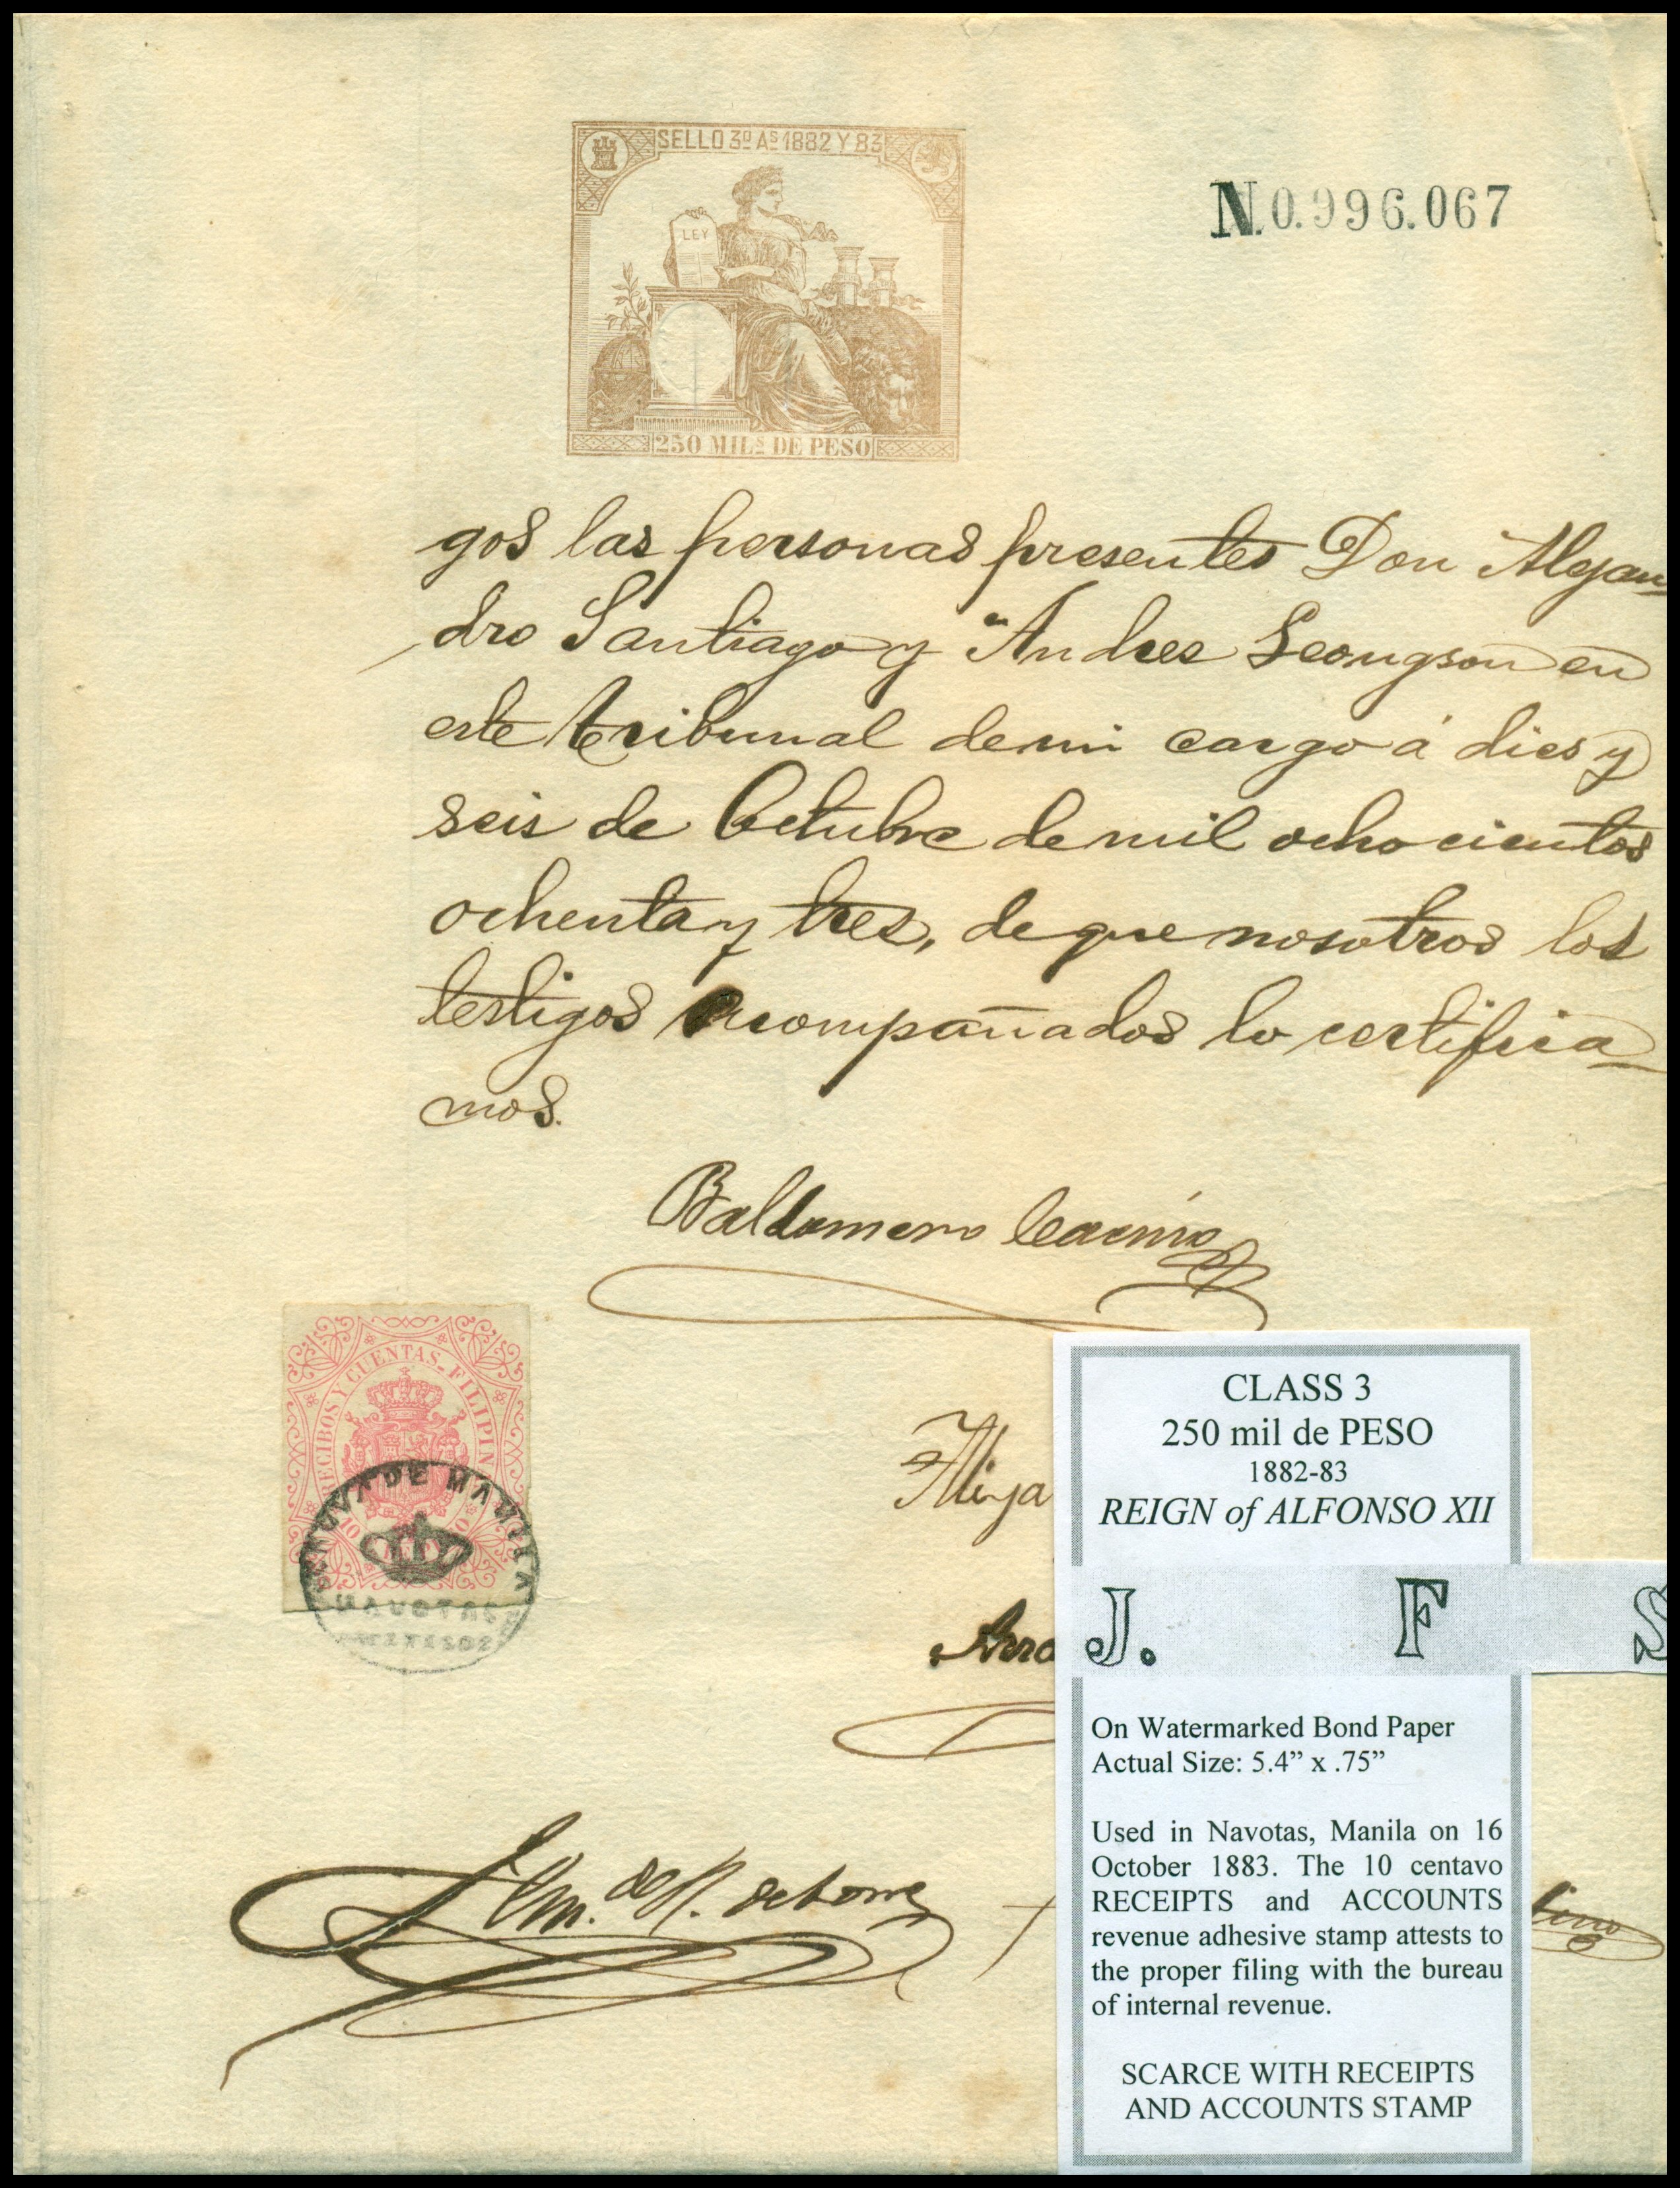 SELLO 3º Aˢ 1882 Y 83
LEY
250 MILˢ DE PESO
N.0.996.067
gos las personas presentes Don Alejan
dro Santiago y Andres Leongson en
este tribunal de mi cargo á dies y
seis de Octubre de mil ocho cientos
ochenta y tres, de que nosotros los
testigos acompañados lo certifica
mos.
Baldomero
RECIBOS Y CUENTAS_FILIPIN
10
DE MANILA
NAVOTAS
CLASS 3
250 mil de PESO
1882-83
REIGN of ALFONSO XII
J. F S
On Watermarked Bond Paper
Actual Size: 5.4” x .75”
Used in Navotas, Manila on 16
October 1883. The 10 centavo
RECEIPTS and ACCOUNTS
revenue adhesive stamp attests to
the proper filing with the bureau
of internal revenue.
SCARCE WITH RECEIPTS
AND ACCOUNTS STAMP